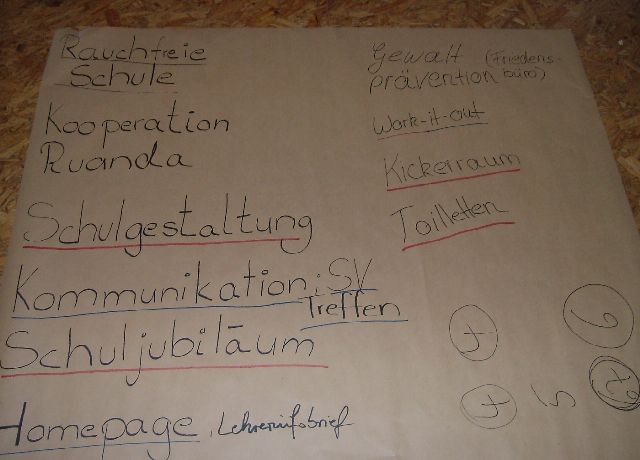 Rauchfreie
Schule
Kooperation
Ruanda
Schulgestaltung
Kommunikation; SV
Treffen
Schuljubiläum
Homepage, Lehrerinfobrief
Gewalt (Friedens-
prävention büro)
Work-it-out
Kickerraum
Toiletten